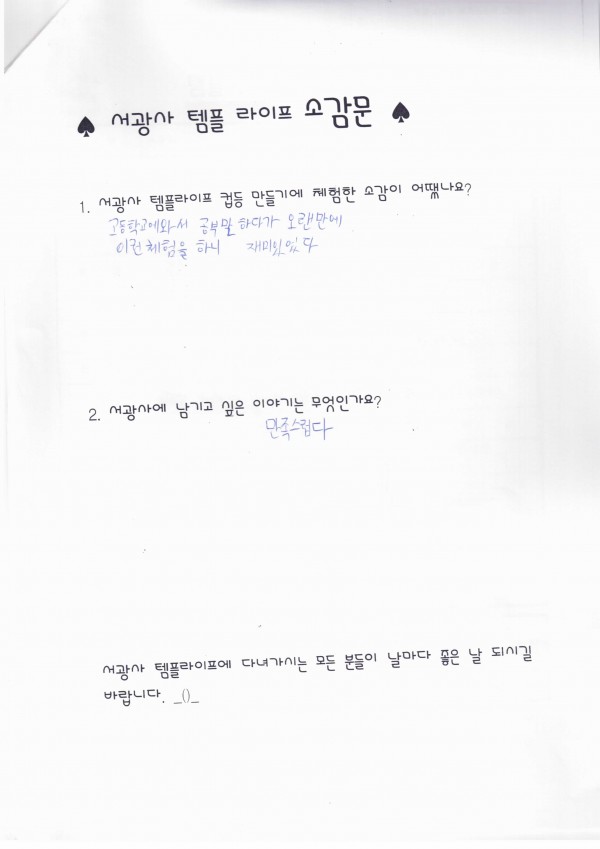 ♠ 서광사 템플 라이프 소감문 ♠
1. 서광사 템플라이프 컵등 만들기에 체험한 소감이 어땠나요?
고등학교에와서 공부말 하다가 오랜만에
이런체험을 하니 재미있었다
2. 서광사에 남기고 싶은 이야기는 무엇인가요?
만족스럽다
서광사 템플라이프에 다녀가시는 모든 분들이 날마다 좋은 날 되시길
바랍니다. _()_